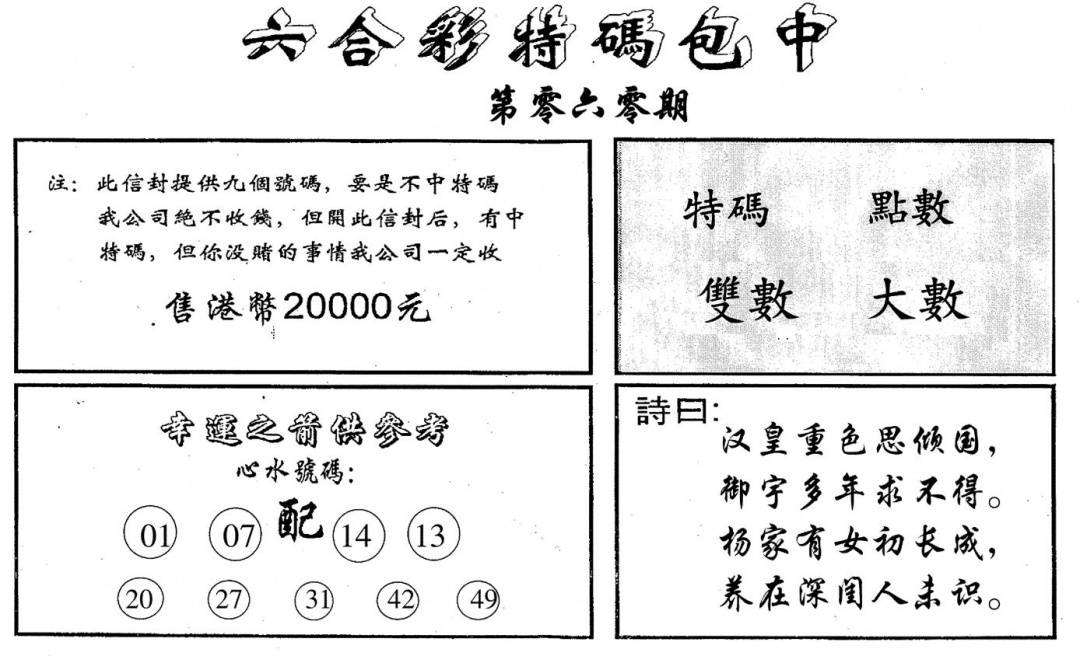 六合彩特碼包中
第零六零期
注：此信封提供九個號碼，要是不中特碼
我公司絕不收錢，但開此信封后，有中
特碼，但你没賭的事情我公司一定收
售港幣20000元
特碼 點數
雙數 大數
幸運之箭供參考
心水號碼：
01 07 配 14 13
20 27 31 42 49
詩曰：
汉皇重色思倾国，
御宇多年求不得。
杨家有女初长成，
养在深闺人未识。